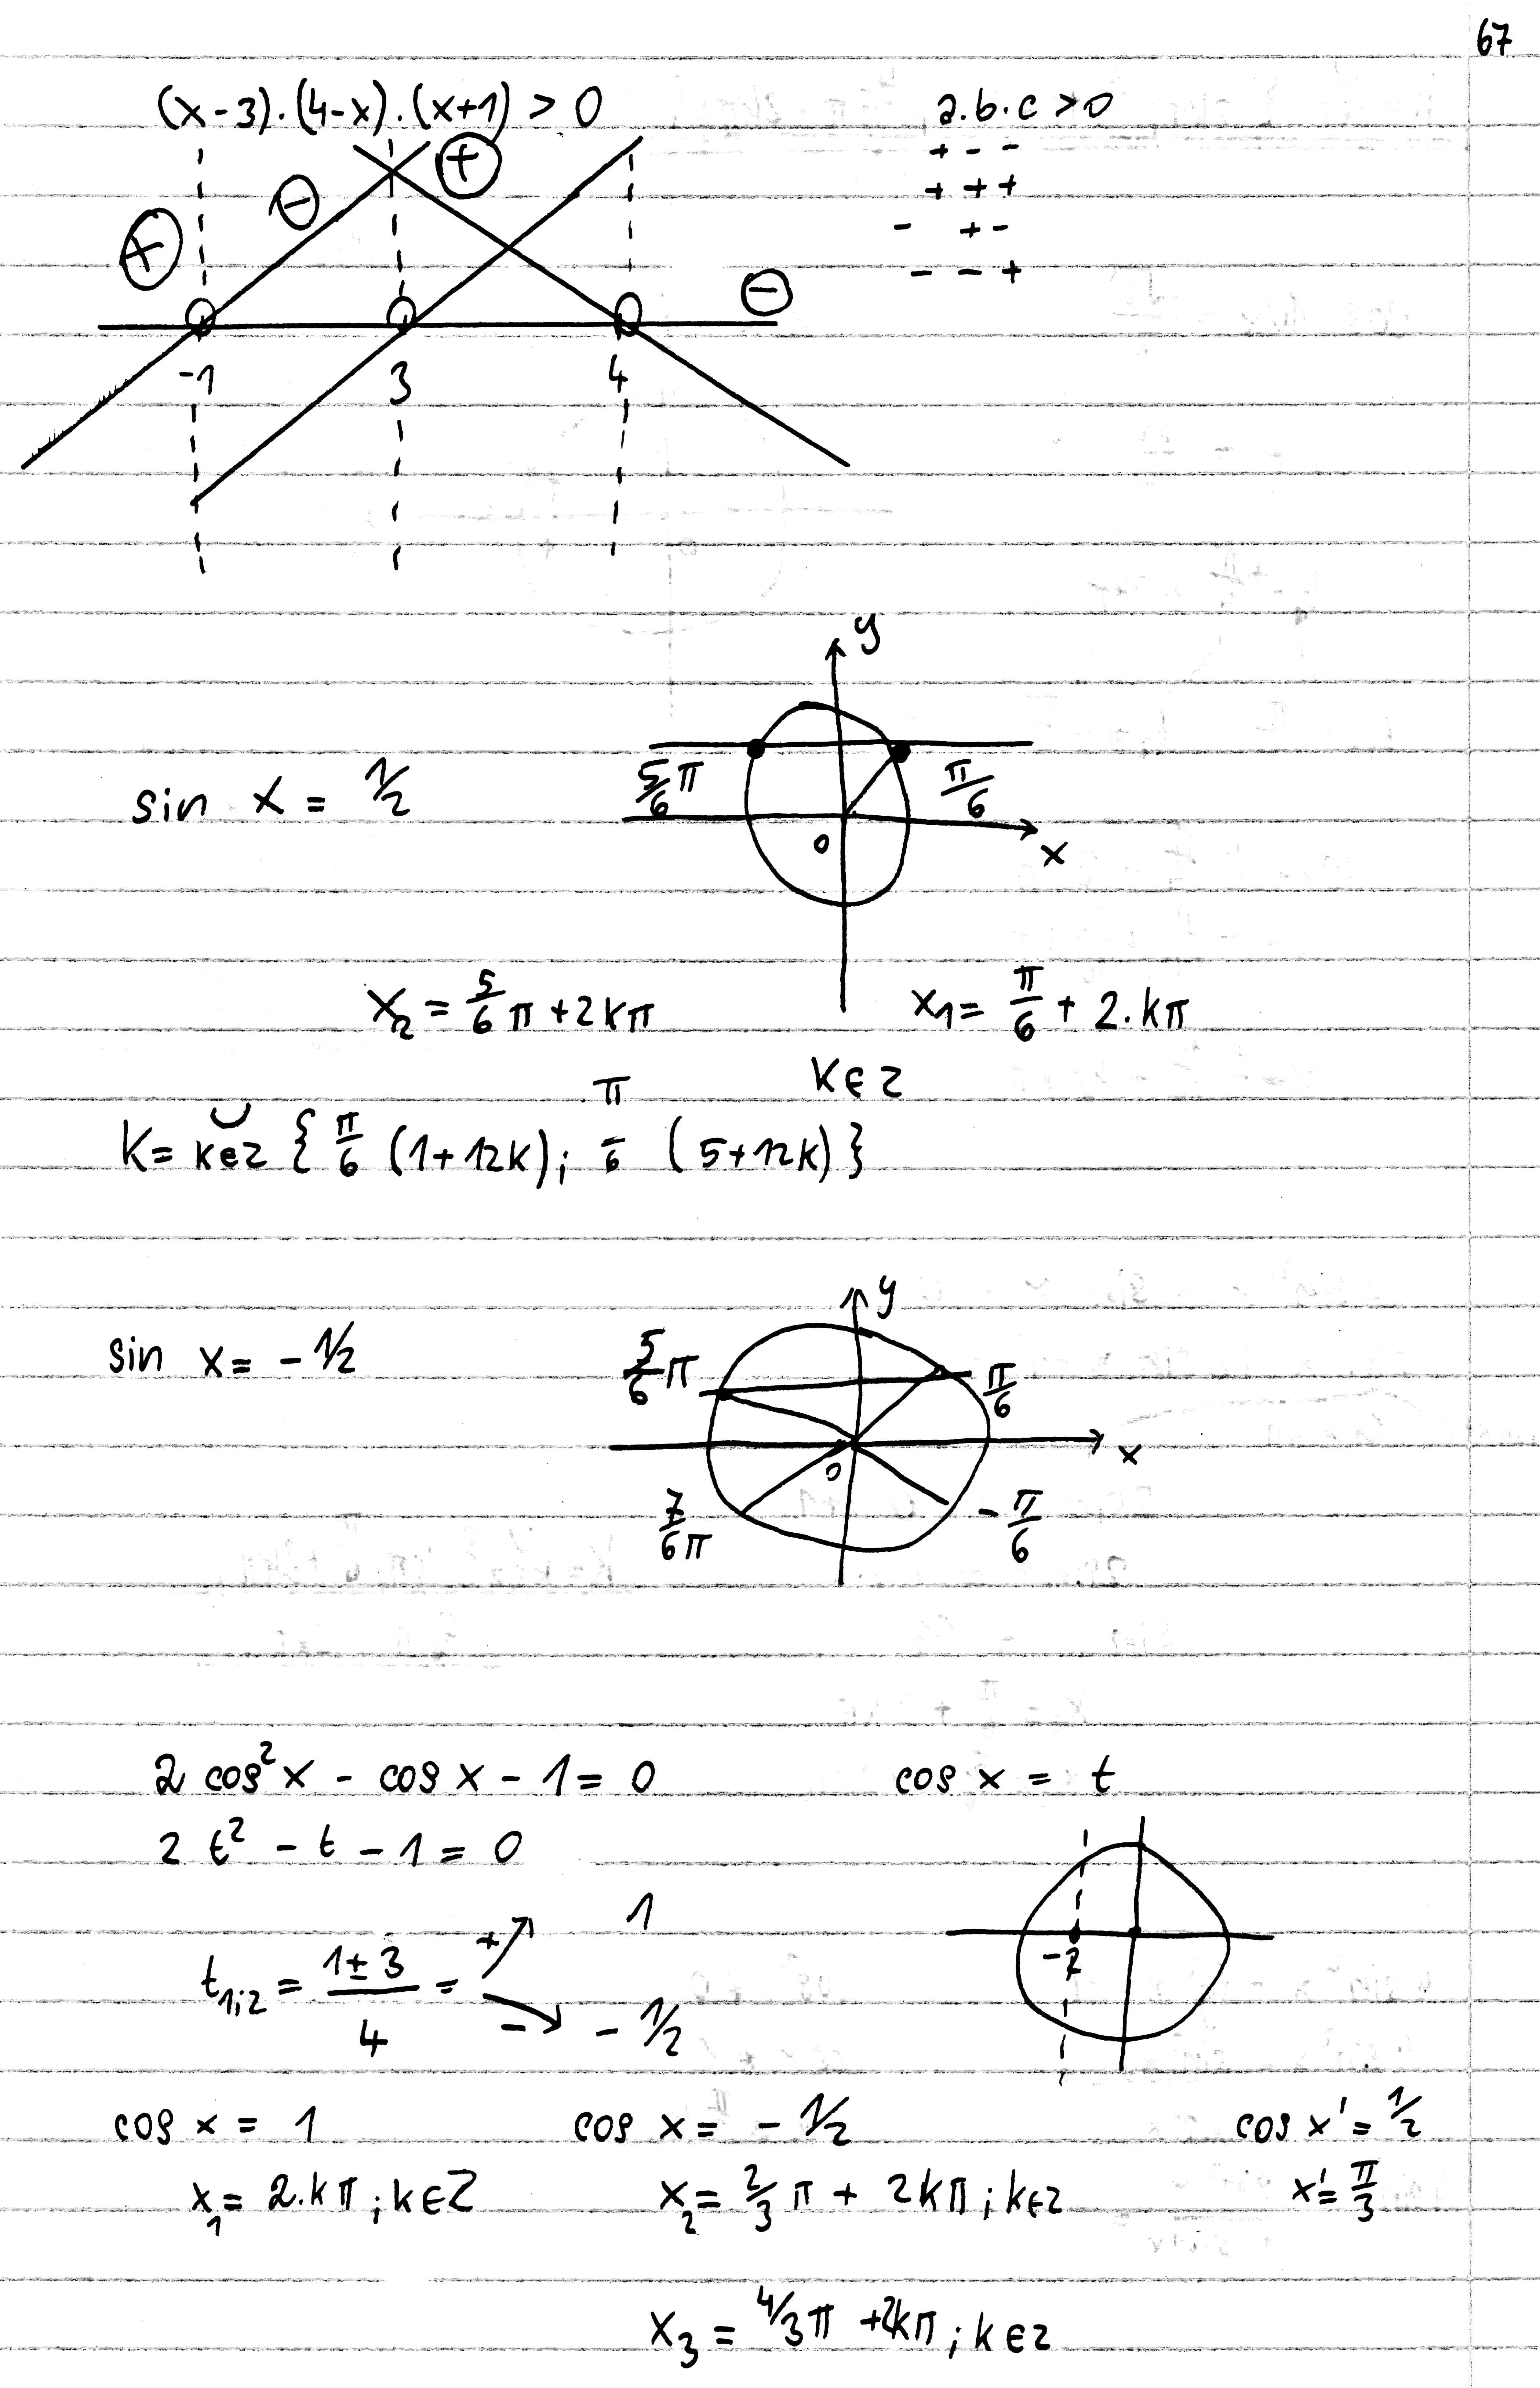 67
(x-3).(4-x).(x+1) > 0
a.b.c > 0
+ - -
+ + +
- + -
- - +
+ - + -
-1 3 4
y
sin x = 1/2
5/6 π π/6
0 x
x2 = 5/6 π + 2kπ x1 = π/6 + 2.kπ
k∈Z
K = ∪ k∈Z { π/6 (1+12k); π/6 (5+12k) }
y
sin x = - 1/2
5/6 π π/6
0 x
7/6 π - π/6
2 cos² x - cos x - 1 = 0 cos x = t
2 t² - t - 1 = 0
t1;2 = (1 ± 3)/4 = + 1
- - 1/2
cos x = 1 cos x = - 1/2 cos x' = 1/2
x1 = 2.kπ ; k∈Z x2 = 2/3 π + 2kπ ; k∈Z x' = π/3
x3 = 4/3 π + 2kπ ; k∈Z